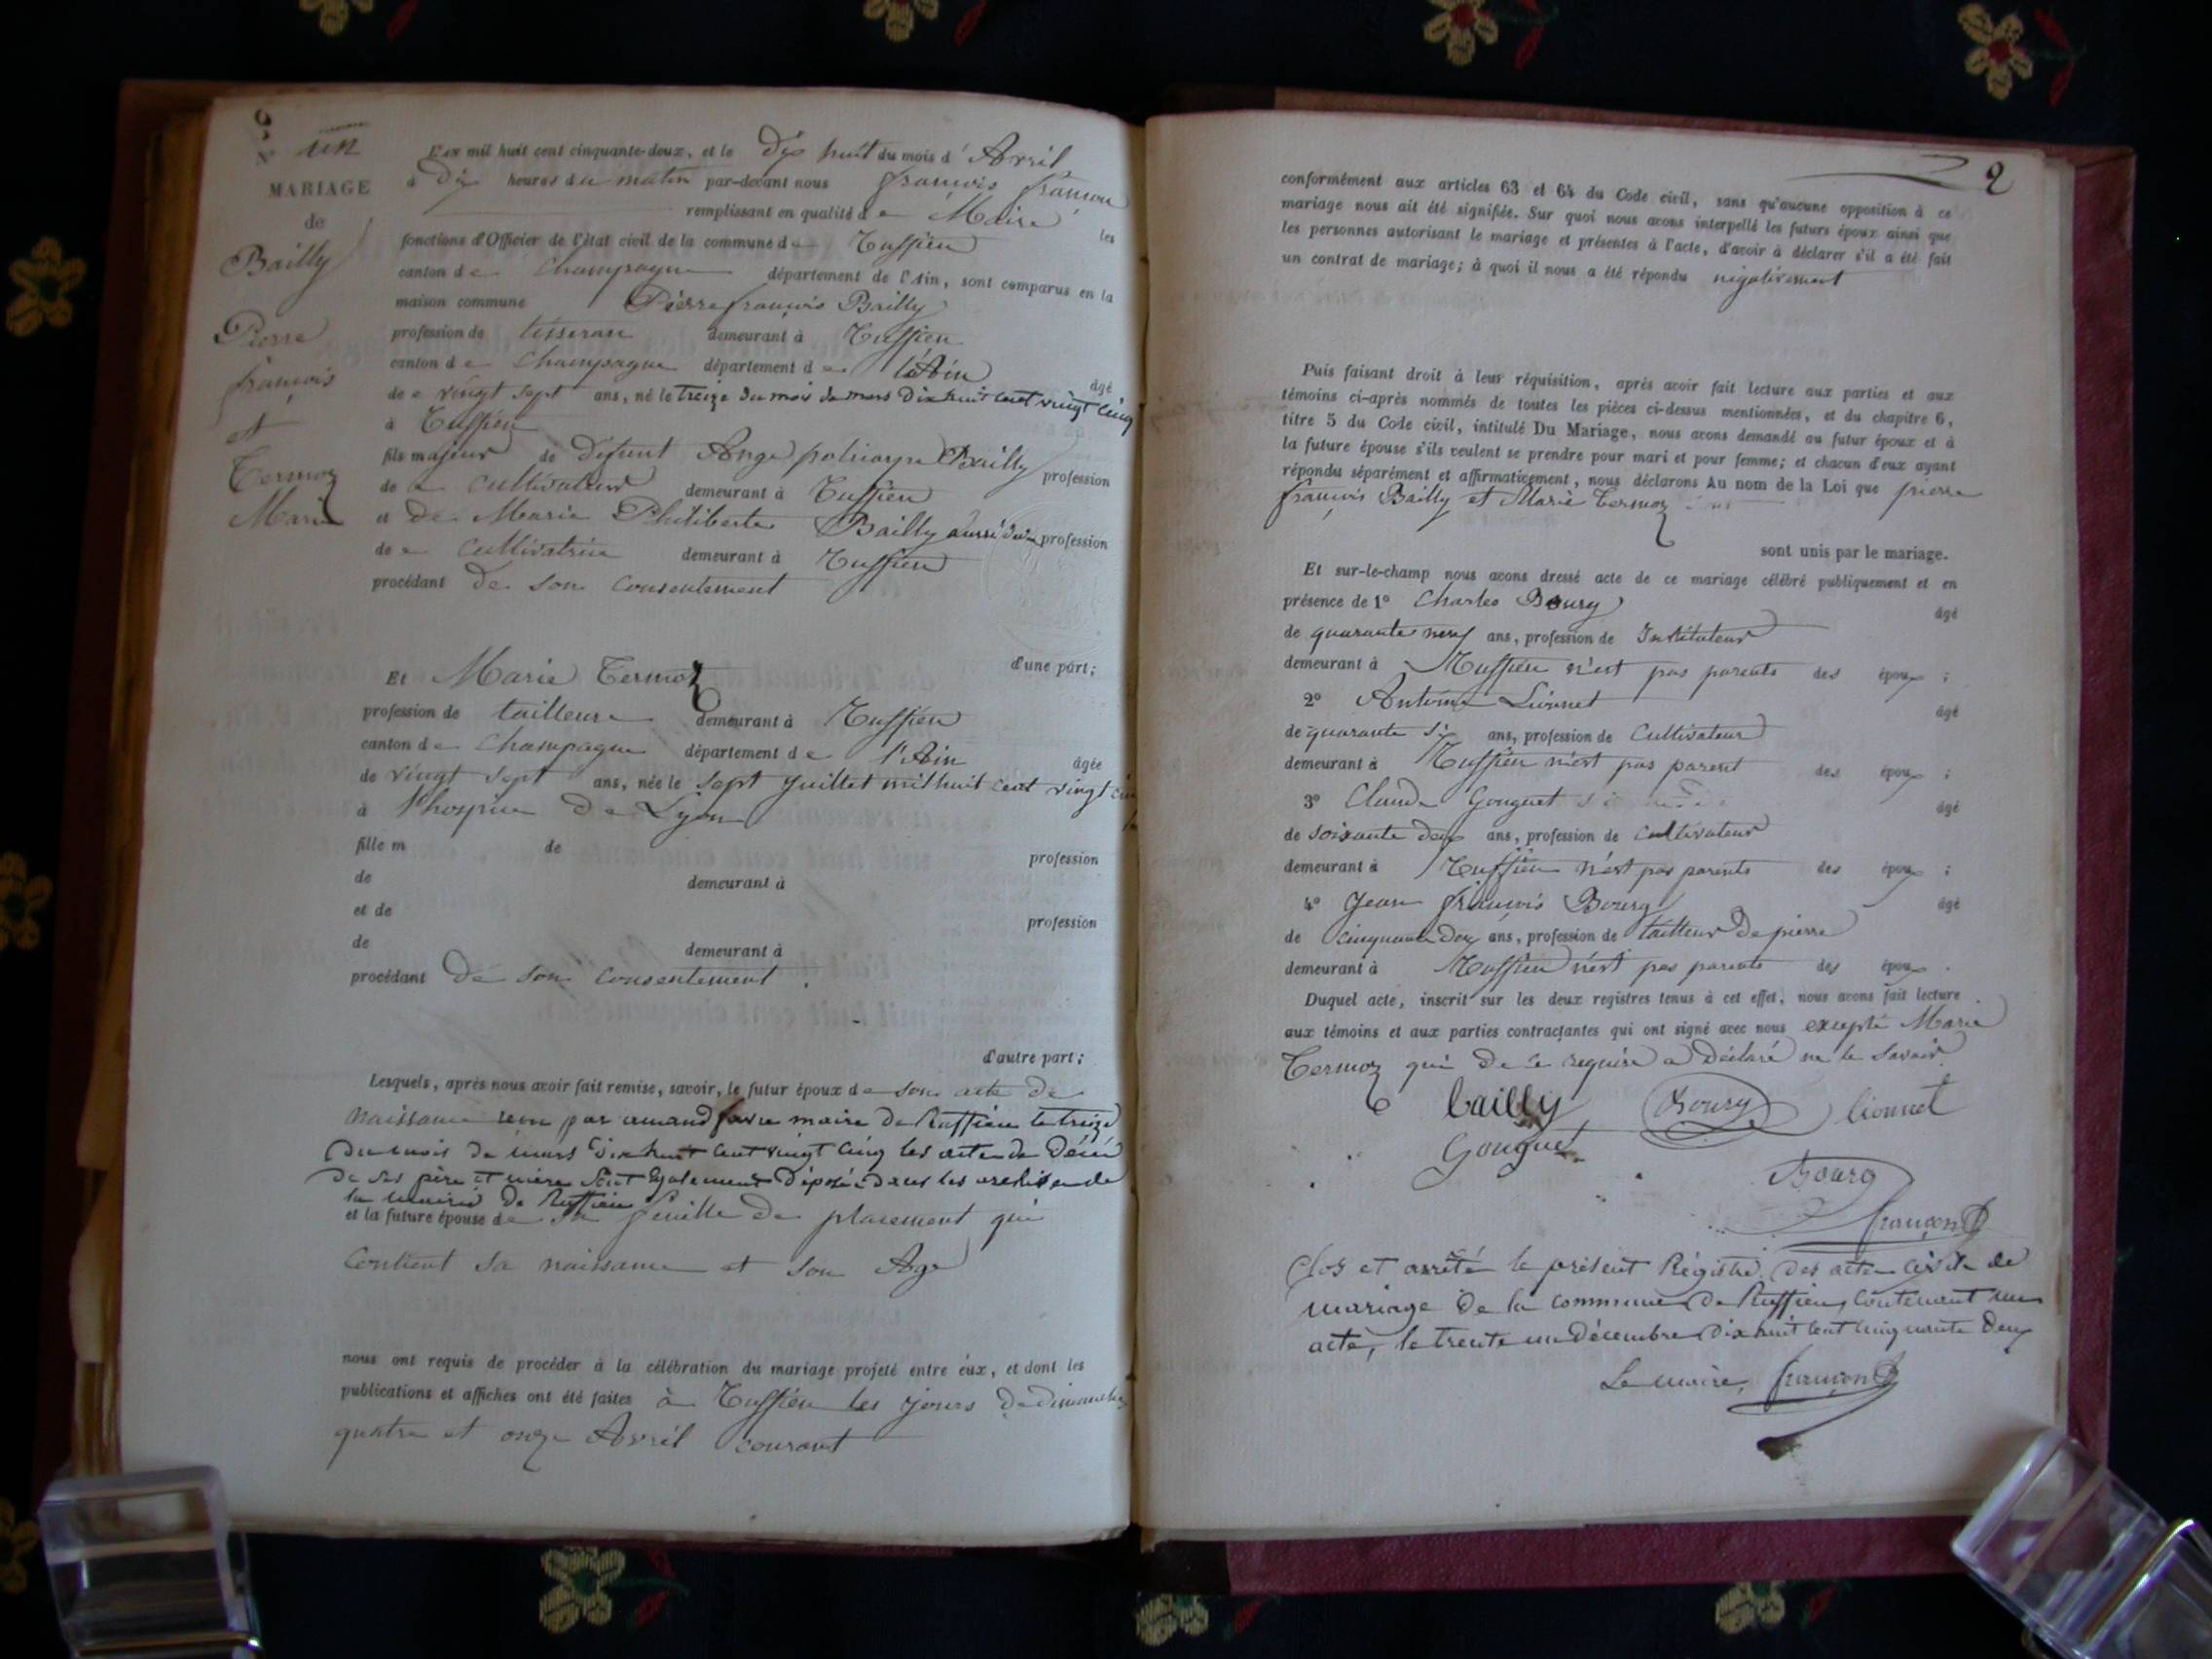 N° un
MARIAGE
de
Bailly
Pierre
françois
et
Termoz
Marie
L'an mil huit cent cinquante-deux, et le dix huit du mois d'Avril
à dix heures du matin par-devant nous françois françon
remplissant en qualité de Maire les
fonctions d'Officier de l'état civil de la commune de Ruffieu
canton de Champagne département de l'Ain, sont comparus en la
maison commune Pierre françois Bailly
profession de tisseran demeurant à Ruffieu
canton de Champagne département de l'Ain âgé
de vingt sept ans, né le treize du mois de mars dix huit cent vingt cinq
à Ruffieu
fils majeur de défunt Ange policarpe Bailly profession
de cultivateur demeurant à Ruffieu
et de Marie Philiberte Bailly aussi profession
de cultivatrice demeurant à Ruffieu
procédant de son consentement
d'une part;
Et Marie Termoz
profession de tailleuse demeurant à Ruffieu
canton de Champagne département de l'Ain âgée
de vingt sept ans, née le sept juillet mil huit cent vingt
à l'hospice de Lyon
fille m de profession
de demeurant à
et de profession
de demeurant à
procédant de son consentement
d'autre part;
Lesquels, après nous avoir fait remise, savoir, le futur époux de son acte de
naissance par amand favre maire de Ruffieu le treize
du mois de mars dix huit cent vingt cinq les actes de décé
de ses père et mère sont également déposé dans les archive de
la mairie de Ruffieu
et la future épouse de sa feuille de placement qui
contient sa naissance et son Age
nous ont requis de procéder à la célébration du mariage projeté entre eux, et dont les
publications et affiches ont été faites à Ruffieu les jours de dimanche
quatre et onze Avril courant
2
conformément aux articles 63 et 64 du Code civil, sans qu'aucune opposition à ce
mariage nous ait été signifiée. Sur quoi nous avons interpellé les futurs époux ainsi que
les personnes autorisant le mariage et présentes à l'acte, d'avoir à déclarer s'il a été fait
un contrat de mariage; à quoi il nous a été répondu négativement
Puis faisant droit à leur réquisition, après avoir fait lecture aux parties et aux
témoins ci-après nommés de toutes les pièces ci-dessus mentionnées, et du chapitre 6,
titre 5 du Code civil, intitulé Du Mariage, nous avons demandé au futur époux et à
la future épouse s'ils veulent se prendre pour mari et pour femme; et chacun d'eux ayant
répondu séparément et affirmativement, nous déclarons Au nom de la Loi que pierre
françois Bailly et Marie Termoz
sont unis par le mariage.
Et sur-le-champ nous avons dressé acte de ce mariage célébré publiquement et en
présence de 1° Charles Boury âgé
de quarante neuf ans, profession de Instituteur
demeurant à Ruffieu n'est pas parents des époux ;
2° Antoine Lionnet âgé
de quarante six ans, profession de Cultivateur
demeurant à Ruffieu n'est pas parent des époux ;
3° Claude Gonguet âgé
de soixante deux ans, profession de cultivateur
demeurant à Ruffieu n'est pas parents des époux ;
4° Jean françois Bourg âgé
de cinquante deux ans, profession de tailleur de pierre
demeurant à Ruffieu n'est pas parents des époux .
Duquel acte, inscrit sur les deux registres tenus à cet effet, nous avons fait lecture
aux témoins et aux parties contractantes qui ont signé avec nous excepté Marie
Termoz qui de ce requise a déclaré ne le savoir
bailly Boury lionnet
Gonguet
Bourg
françon
Clos et arrêté le présent Régistre des actes civils de
mariage de la commune de Ruffieu, contenant un
acte, le trente un décembre dix huit cent cinquante deux
Le maire, françon